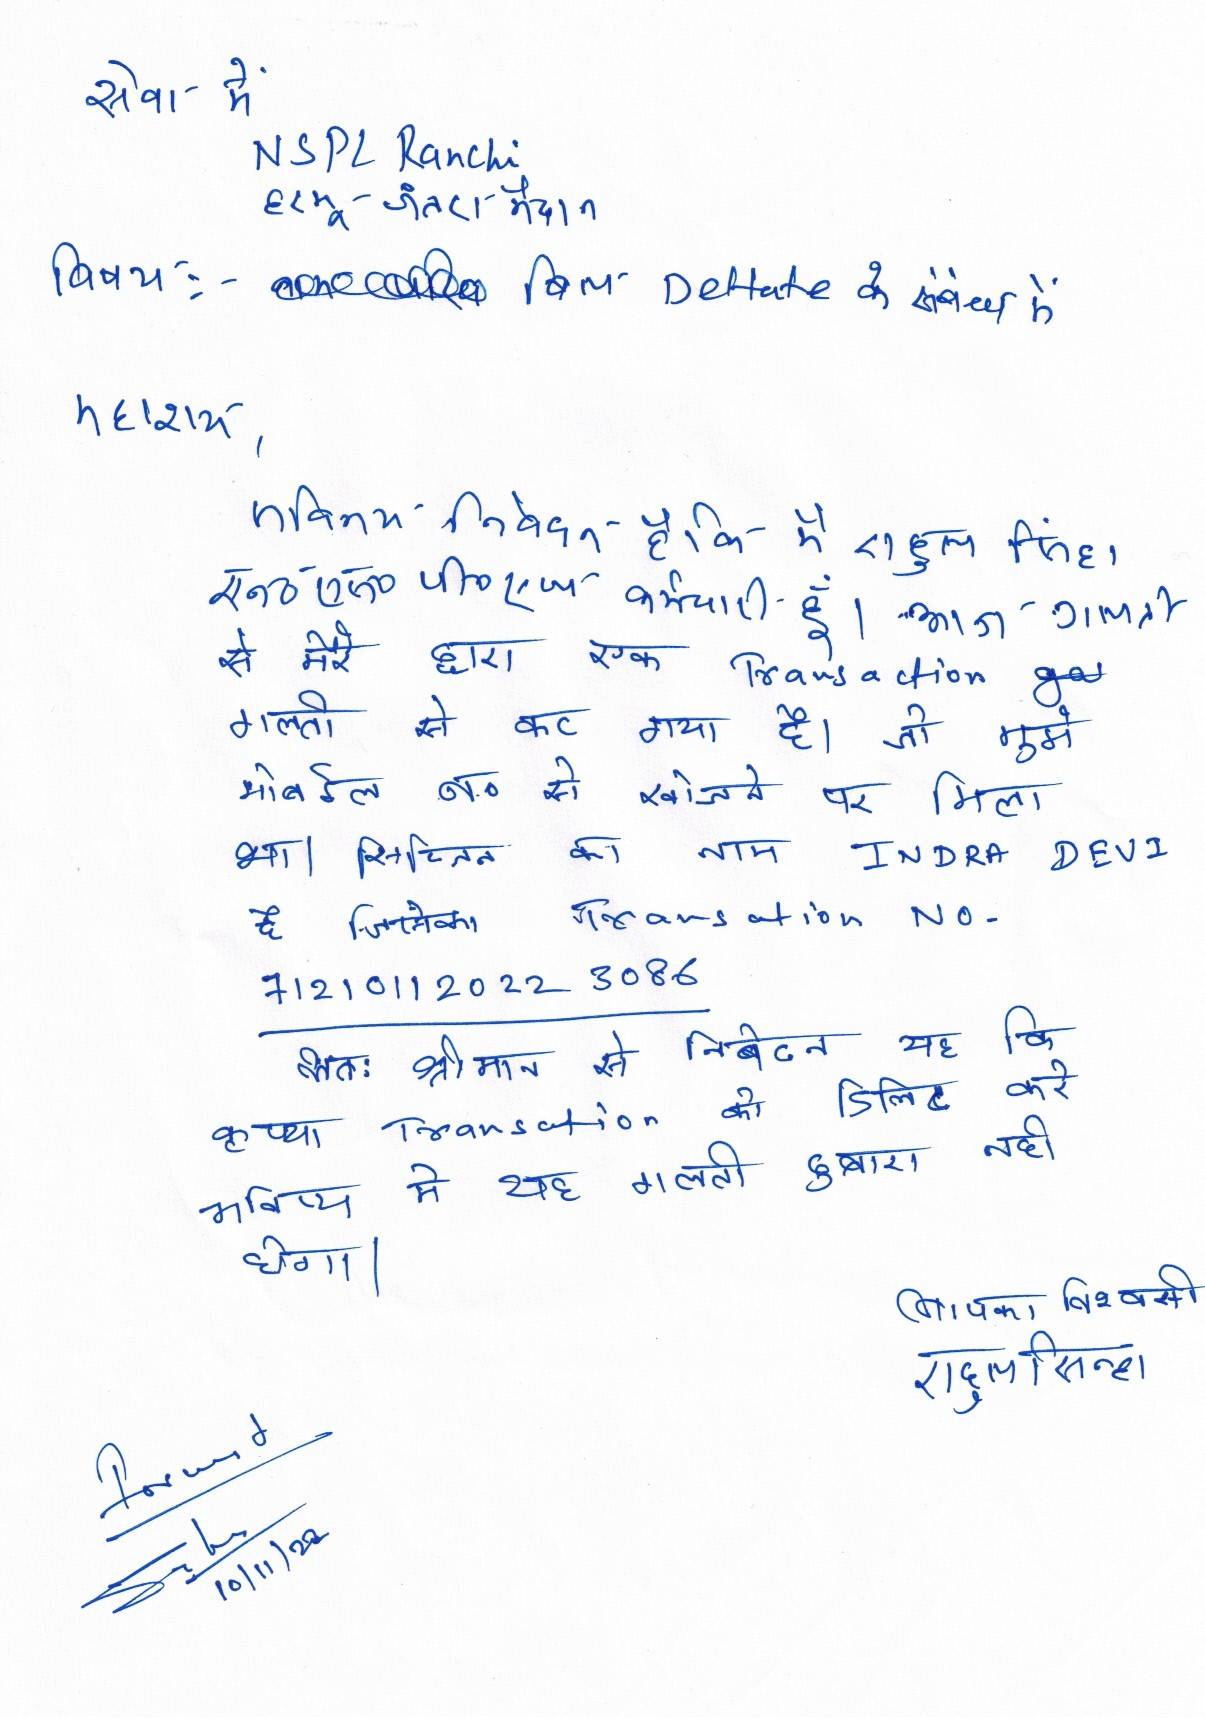 सेवा में
NSPL Ranchi
हरमू जतरा मैदान
विषय :- बिल Deltate के संबंध में
महाशय,
सविनय निवेदन है कि मैं राहुल सिंहा
एन० एस० पी० एल कर्मचारी हूँ। आज गलती
से मेरे द्वारा एक Transaction
गलती से कट गया है। जो मुझे
मोबईल न० से खोजने पर मिला
था। का नाम INDRA DEVI
है जिसका Transation NO-
7121011 2022 3086
अतः श्रीमान से निबेदन यह कि
कृप्या Transation को डिलिट करे
भविष्य मे यह गलती दुबारा नही
होगा।
आपका विश्वसी
राहुल सिन्हा
Forward
10/11/22